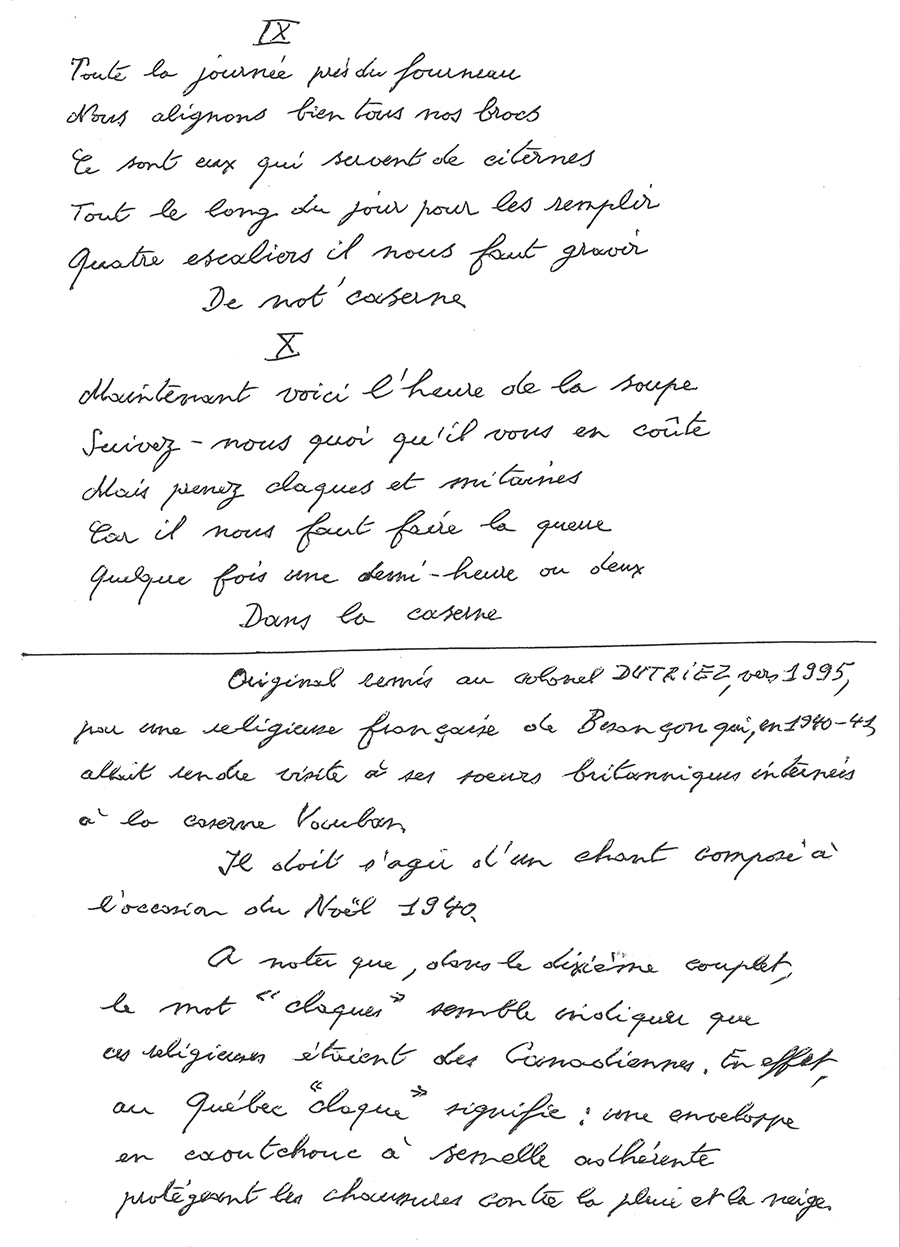 IX
Toute la journée près du fourneau
Nous alignons bien tous nos brocs
Ce sont eux qui servent de citernes
Tout le long du jour pour les remplir
Quatre escaliers il nous faut gravir
De not' caserne
X
Maintenant voici l'heure de la soupe
Suivez-nous quoi qu'il vous en coûte
Mais penez claques et mitaines
Car il nous faut faire la queue
Quelque fois une demi-heure ou deux
Dans la caserne
Original remis au colonel DUTRIEZ, vers 1995,
par une religieuse française de Besançon qui, en 1940-41,
allait rendre visite à ses soeurs britanniques internées
à la caserne Vauban.
Il doit s'agir d'un chant composé à
l'occasion du Noël 1940.
A noter que, dans le dixième couplet,
le mot "claques" semble indiquer que
ces religieuses étaient des Canadiennes. En effet,
au Québec "claque" signifie : une enveloppe
en caoutchouc à semelle adhérente
protégeant les chaussures contre la pluie et la neige.